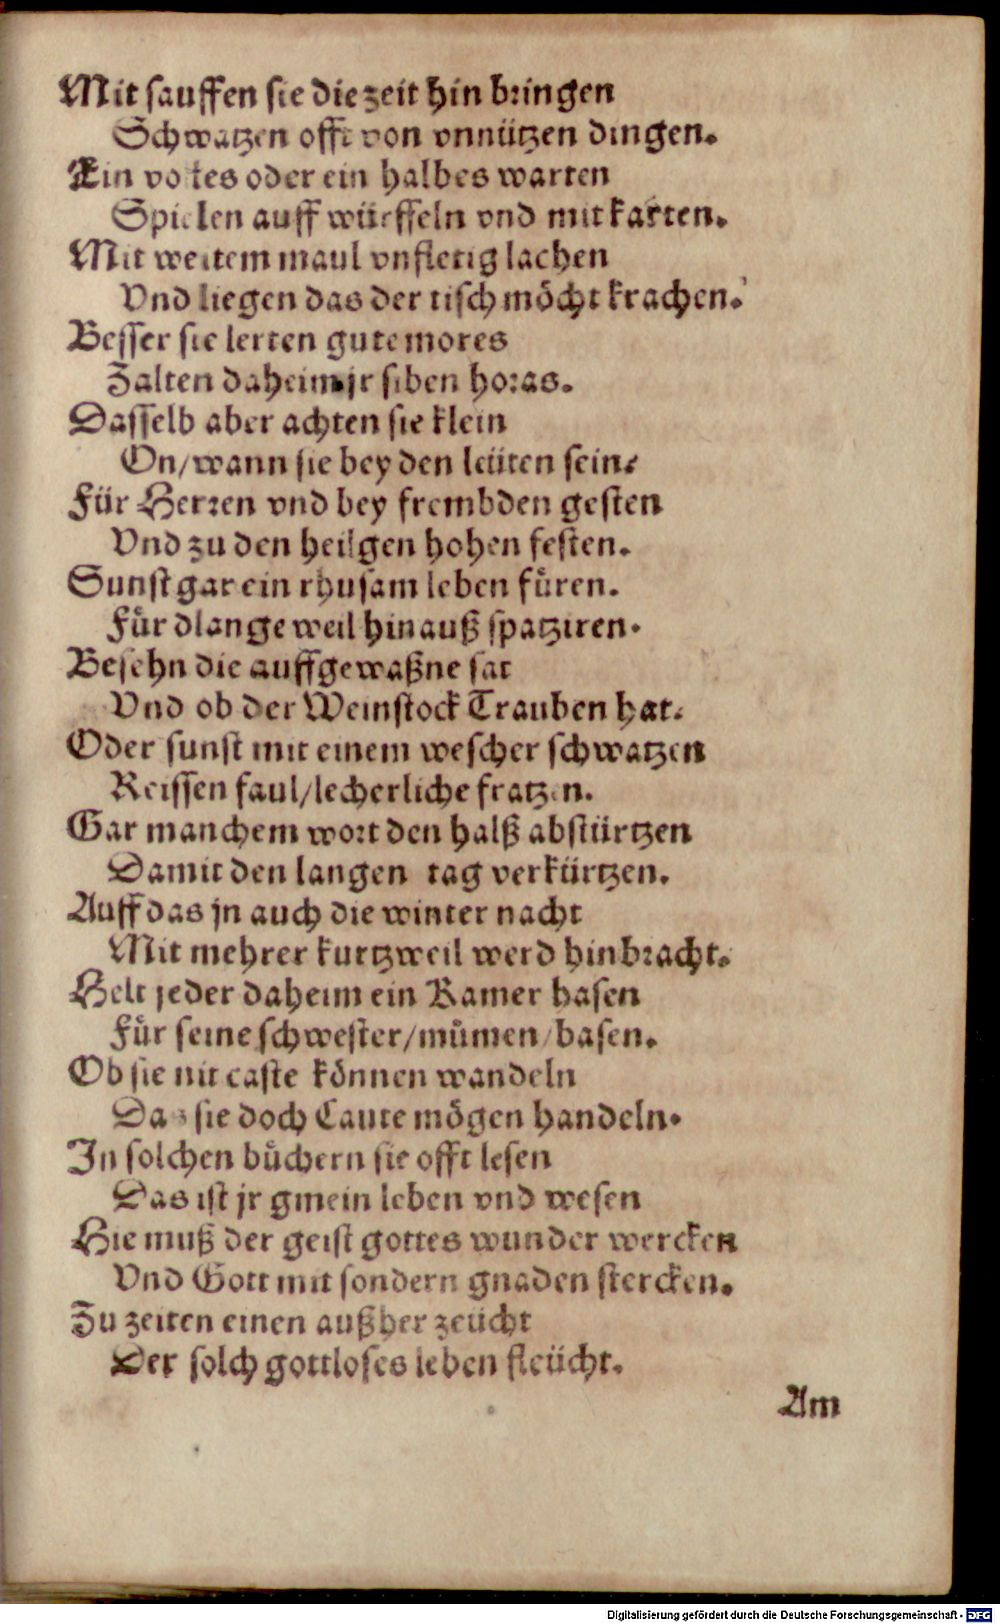 Mit sauffen sie die zeit hin bringen
Schwatzen offt von vnnützen dingen.
Ein volles oder ein halbes warten
Spielen auff würffeln vnd mit karten.
Mit weitem maul vnfletig lachen
Vnd liegen das der tisch möcht krachen.
Besser sie lerten gute mores
Zalten daheim jr siben horas.
Dasselb aber achten sie klein
On/wann sie bey den leüten sein.
Für Herren vnd bey frembden gesten
Vnd zu den heilgen hohen festen.
Sunst gar ein rhusam leben fůren.
Für dlange weil hinauß spatziren.
Besehn die auffgewaßne sat
Vnd ob der Weinstock Trauben hat.
Oder sunst mit einem wescher schwatzen
Reissen faul/lecherliche fratzen.
Gar manchem wort den halß abstürtzen
Damit den langen tag verkürtzen.
Auff das jn auch die winter nacht
Mit mehrer kurtzweil werd hinbracht.
Helt jeder daheim ein Kamer hasen
Für seine schwester/můmen/basen.
Ob sie nit caste können wandeln
Das sie doch Caute mögen handeln.
In solchen bůchern sie offt lesen
Das ist jr gmein leben vnd wesen
Hie muß der geist gottes wunder wercken
Vnd Gott mit sondern gnaden stercken.
Zu zeiten einen außher zeücht
Der solch gottloses leben fleücht.
Am
Digitalisierung gefördert durch die Deutsche Forschungsgemeinschaft - DFG